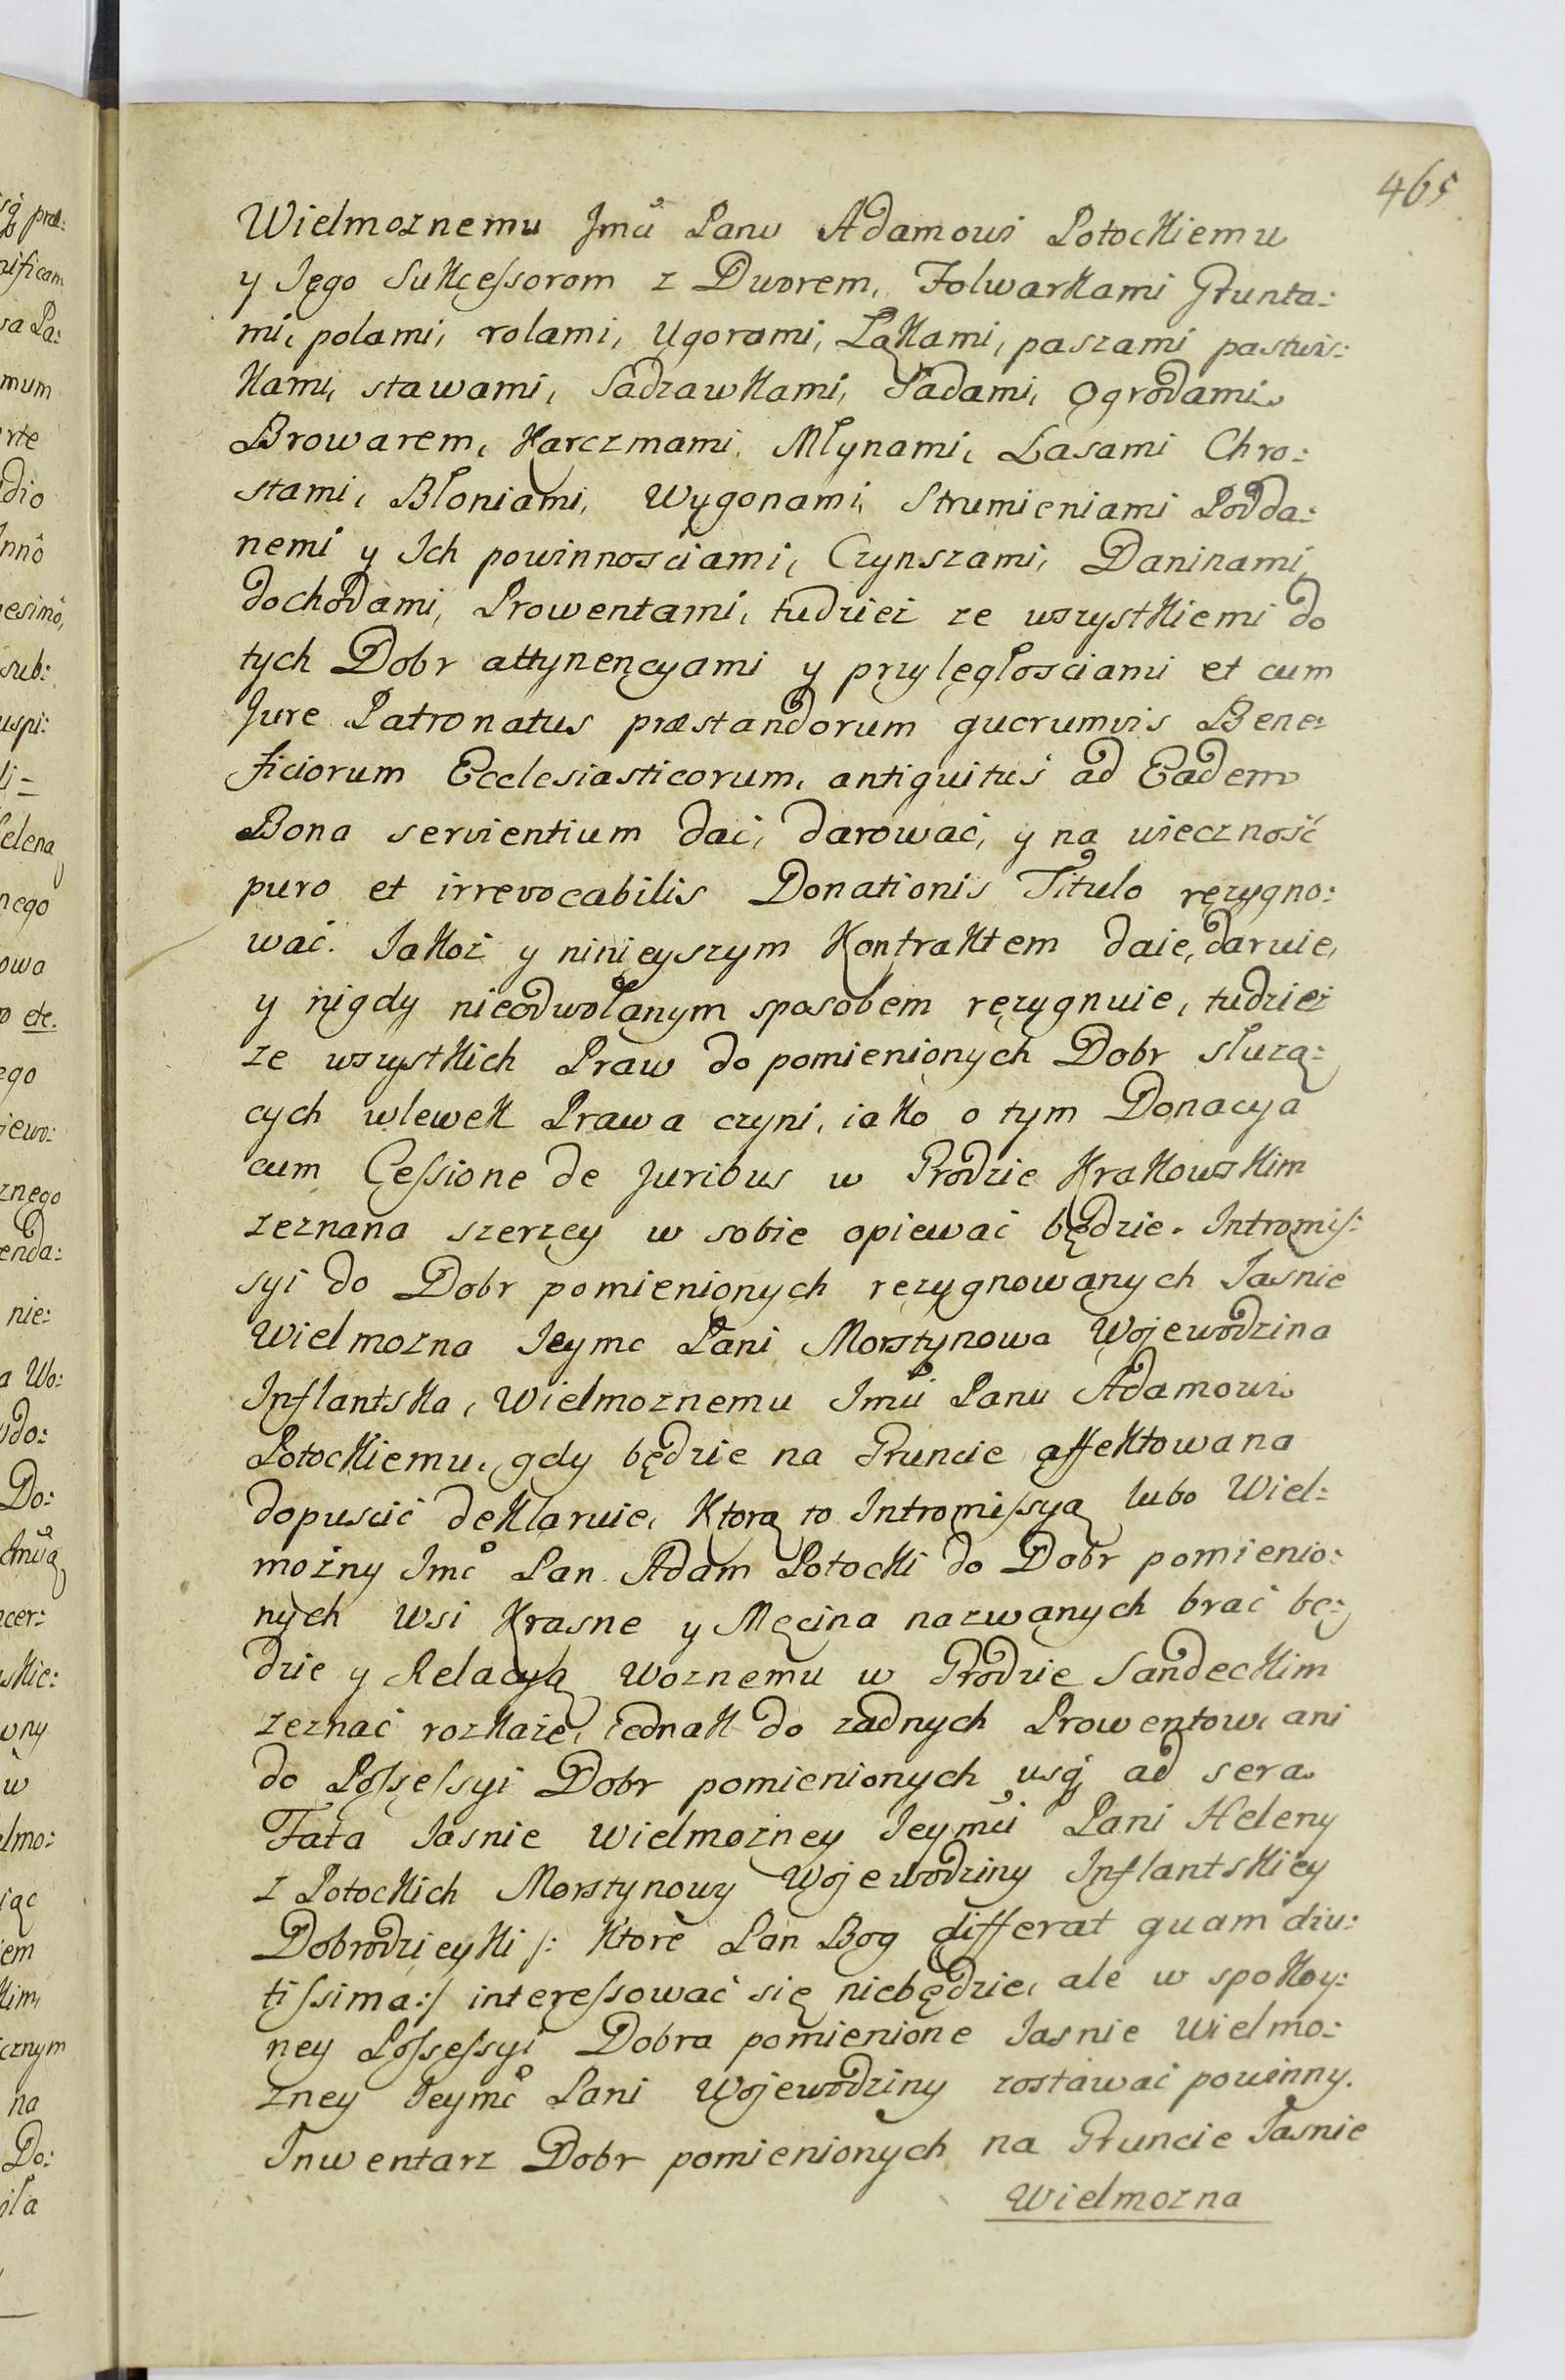 465
Wielmoznemu Jmcu Panu Adamowi Potockiemu
y Jego Sukcessorom z Dworem, Folwarkami Grunta:
mi, polami, rolami, Ugorami, Łąkami, paszami pastwis:
kami, stawami, Sadzawkami, Sadami, Ogrodami
Browarem, Karczmami, Młynami, Lasami Chro:
stami, Błoniami, Wygonami, Strumieniami Podda:
nemi y Ich powinnosciami, Czynszami, Daninami,
dochodami, Prowentami, tudzież ze wszystkiemi do
tych Dobr attynencyami y przyległosciami et cum
Jure Patronatus præstandorum qucrumvis Bene:
ficiorum Ecclesiasticorum, antiquitus ad Eadem
Bona servientium dać, darować, y na wieczność
puro et irrevocabilis Donationis Titulo rezygno:
wać. Jakoż y ninieyszym Kontraktem daie, daruie,
y nigdy nieodwołanym sposobem rezygnuie, tudzież
ze wszystkich Praw do pomienionych Dobr słuzą:
cych wlewek Prawa czyni, iako o tym Donacya
cum Cessione de Juribus w Grodzie Krakowskim
zeznana szerzey w sobie opiewać będzie. Intromis:
syi do Dobr pomienionych rezygnowanych Jasnie
Wielmozna Jeymc Pani Morstynowa Wojewodzina
Inflantska, Wielmoznemu Jmcu Panu Adamowi
Potockiemu, gdy będzie na Gruncie affektowana
dopuscić deklaruie, Ktorą to Intromissyą lubo Wiel:
możny Jmć Pan Adam Potocki do Dobr pomienio:
nych Wsi Krasne y Męcina nazwanych brać bę:
dzie y Relacyą Woznemu w Grodzie Sandeckim
zeznać rozkaże, iednak do zadnych Prowentow, ani
do Possessyi Dobr pomienionych usq ad sera
Fata Jasnie Wielmożney Jeymci Pani Heleny
z Potockich Morstynowy Wojewodziny Inflantskiey
Dobrodzieyki /: Ktore Pan Bog differat quam diu:
tissima:/ interessować się niebędzie, ale w spokoy:
ney Possessyi Dobra pomienione Jasnie Wielmo:
zney Jeymć Pani Wojewodziny zostawać powinny.
Inwentarz Dobr pomienionych na Gruncie Jasnie
Wielmozna